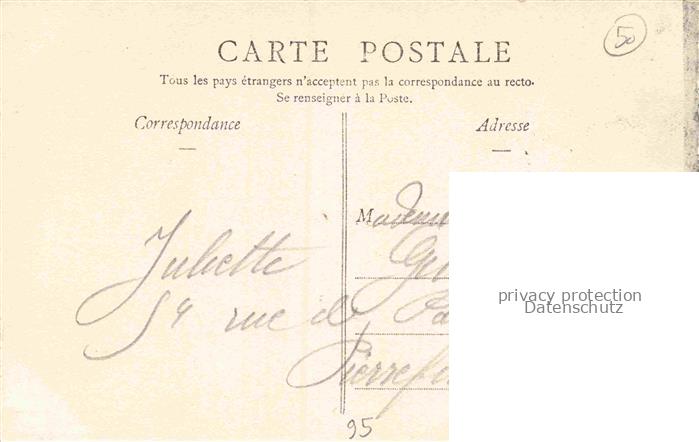 50
CARTE POSTALE
Tous les pays étrangers n'acceptent pas la correspondance au recto.
Se renseigner à la Poste.
Correspondance
Adresse
Juliette
54 rue de
Pierref
95
privacy protection
Datenschutz